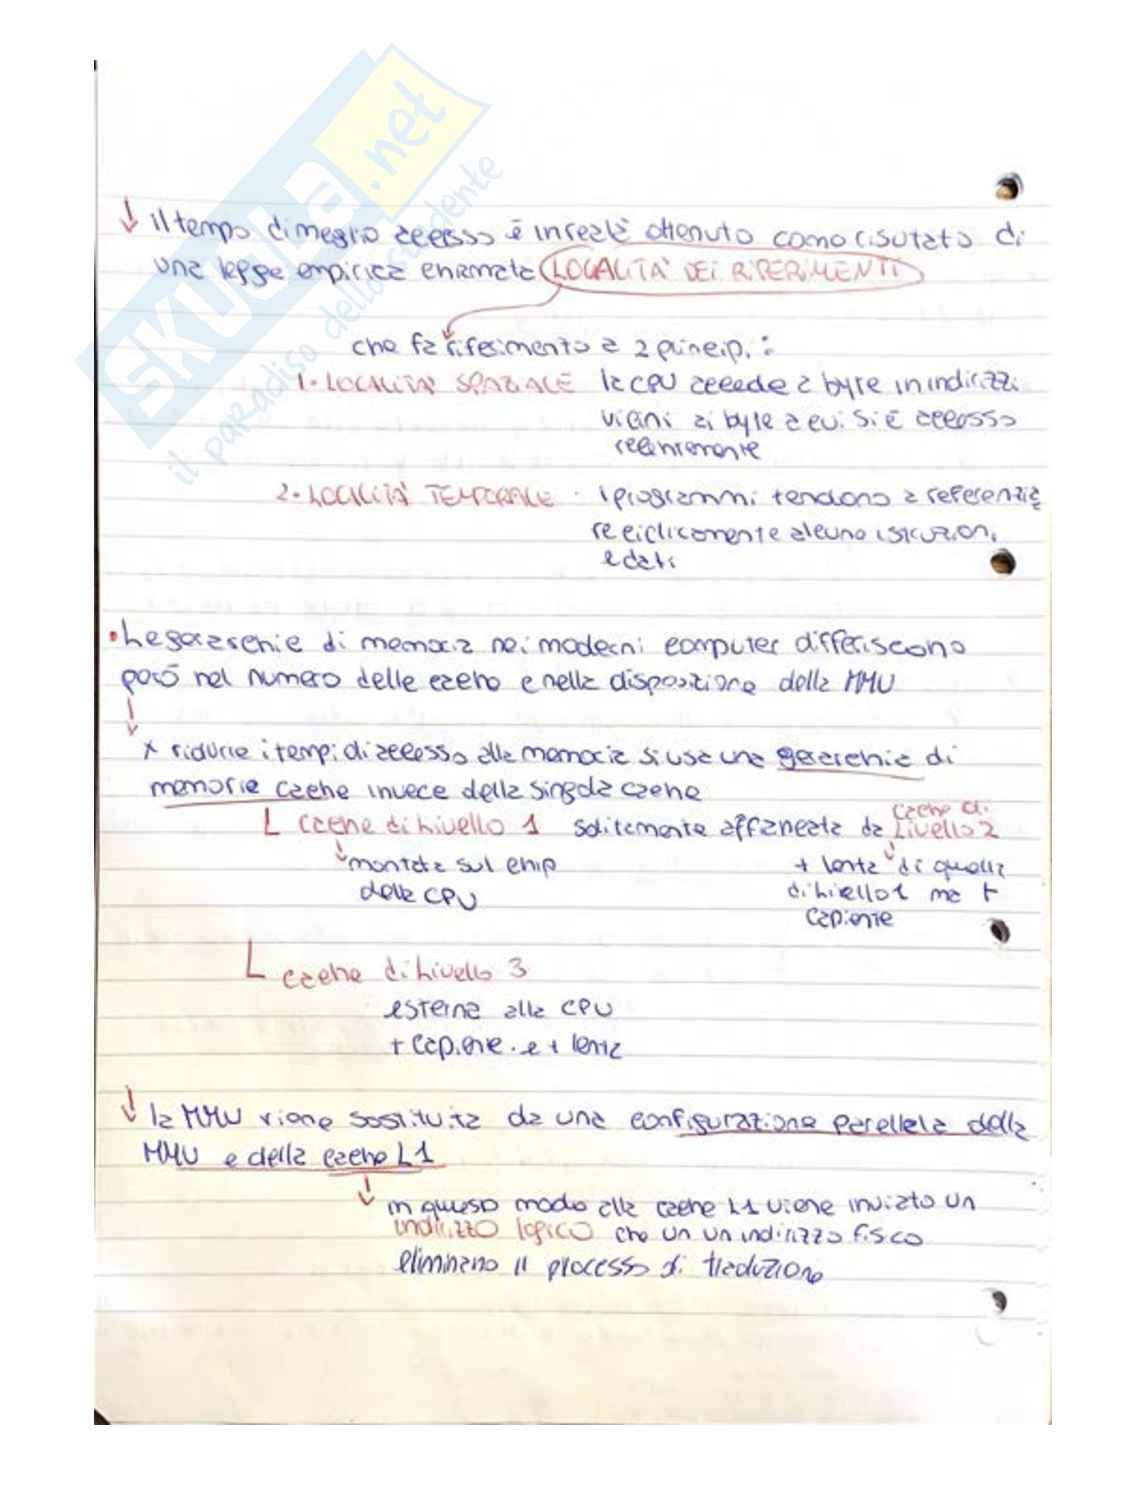 SKUOLA.net
il paradiso dello studente
↓ Il tempo di meglio accesso è in realtà ottenuto come risultato di
una legge empirica chiamata LOCALITÀ DEI RIFERIMENTI
che fa riferimento a 2 princip. :
1. LOCALITÀ SPAZIALE la CPU accede a byte in indirizzi
vicini ai byte a cui si è accesso
recentemente
2. LOCALITÀ TEMPORALE . i programmi tendono a referenzia
re ciclicamente alcune istruzion.
e dati
• Le gerarchie di memoria nei moderni computer differiscono
però nel numero delle cache e nella disposizione della MMU
↓
x ridurre i tempi di accesso alla memoria si usa una gerarchia di
memorie cache invece della singola cache
L cache di livello 1 solitamente affiancata da cache di livello 2
↓ montata sul chip
della CPU
↓ + lenta di quella
di livello 1 ma +
capiente
L cache di livello 3
esterna alla CPU
+ capiente e + lenta
↓ la MMU viene sostituita da una configurazione parallela della
MMU e della cache L1
↓ in questo modo alla cache L1 viene inviato un
indirizzo logico che un un indirizzo fisico
eliminano il processo di traduzione